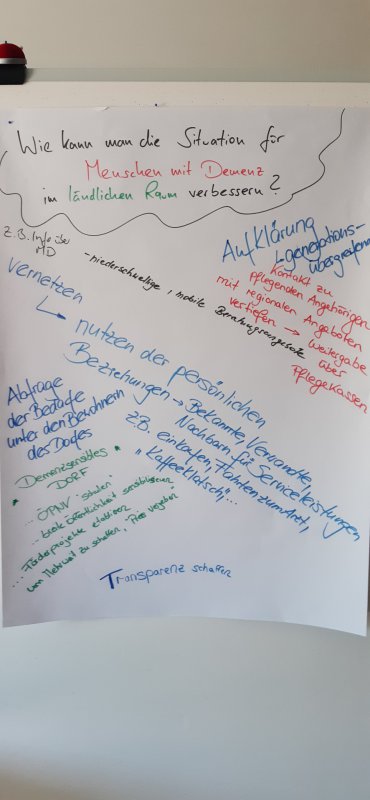 Wie kann man die Situation für
Menschen mit Demenz
im ländlichen Raum verbessern?
z.B. Info über
MD
- niederschwellige, mobile Beratungsangebote
Aufklärung
- generations-
übergreifend
Kontakt zu
pflegenden Angehörigen
mit regionalen Angeboten
vertiefen → Weitergabe
über
Pflegekassen
vernetzen
↳ nutzen der persönlichen
Beziehungen → Bekannte, Verwandte
Nachbarn für Serviceleistungen
z.B. einkaufen, Fahrten zum Arzt,
"Kaffeeklatsch",...
Abfrage
der Bedarfe
unter den Bewohnern
des Dorfes
Demenzgerechtes
DORF
... ÖPNV "schulen"
... breite Öffentlichkeit sensibilisieren
... Förderprojekte etablieren
um Mehrwert zu schaffen, "Preis vergeben"
Transparenz schaffen